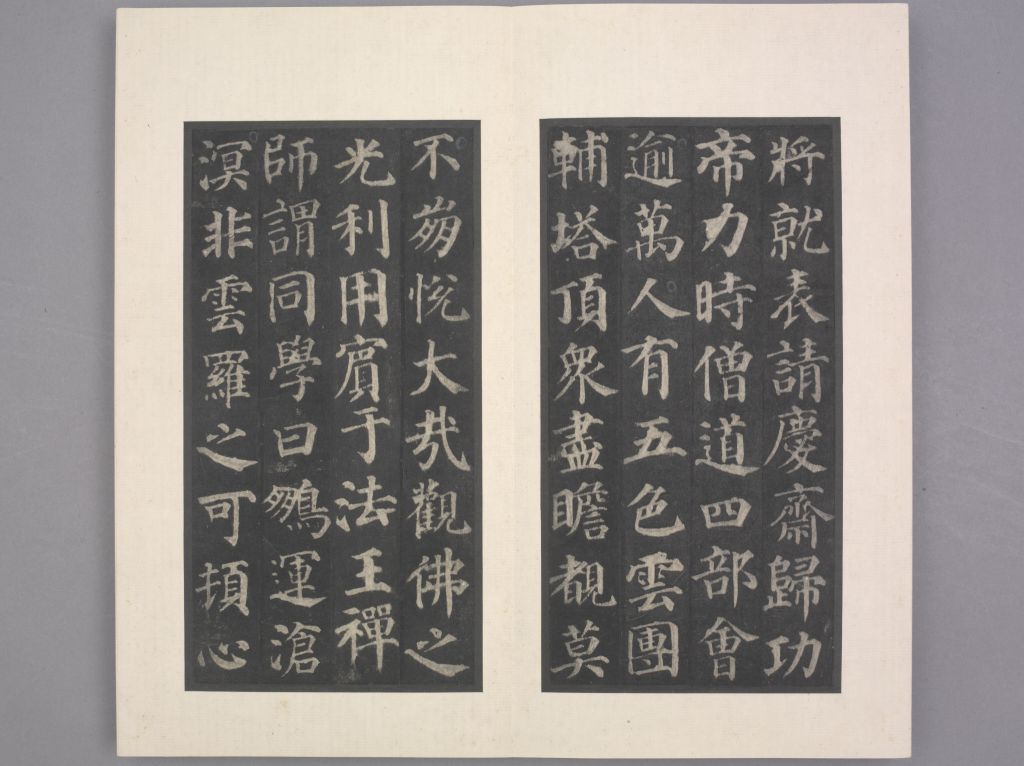 將就表請慶齋歸功
帝力時僧道四部會
逾萬人有五色雲團
輔塔頂衆盡瞻覩莫
不崩悅大㢤觀佛之
光利用賔于法王禪
師謂同學曰鵬運滄
溟非雲羅之可頓心